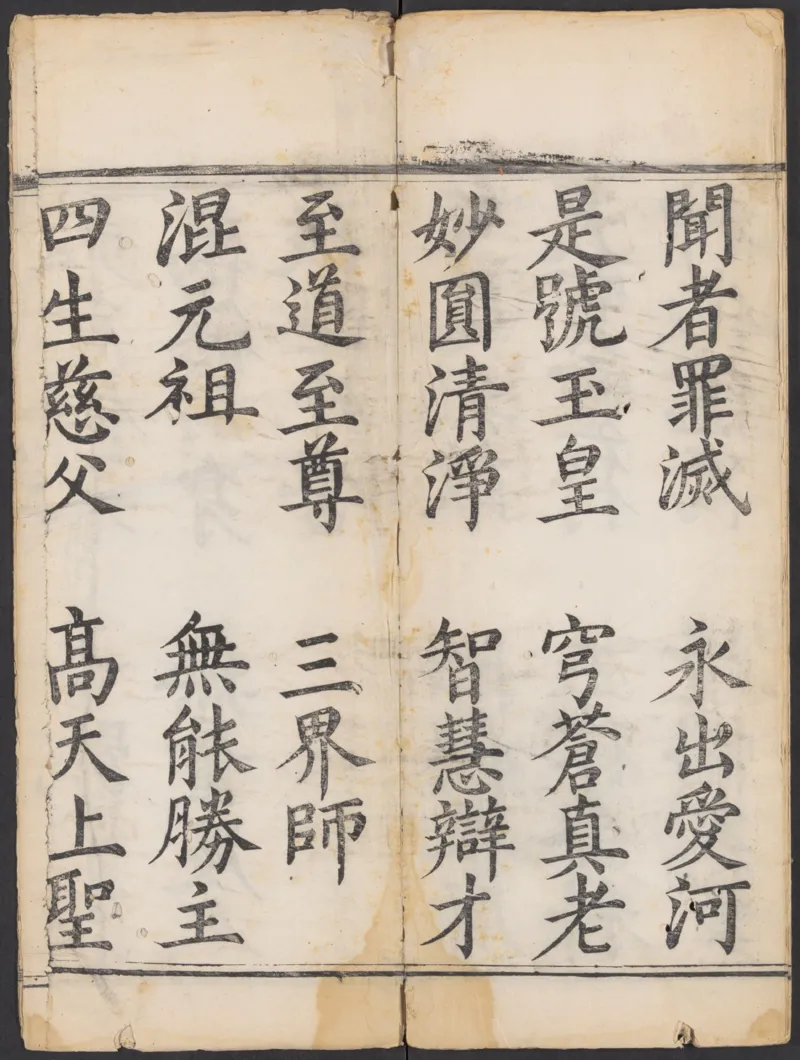 聞者罪滅 永出愛河
是號玉皇 穹蒼真老
妙圓清淨 智慧辯才
至道至尊 三界師
混元祖 無能勝主
四生慈父 高天上聖